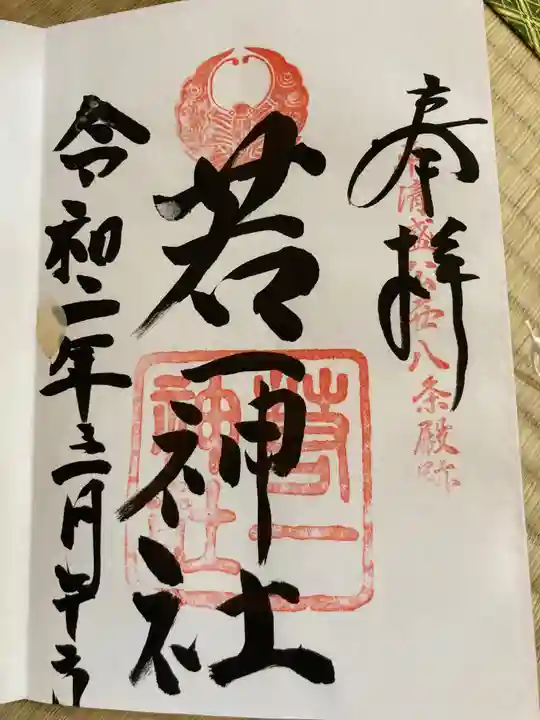 奉拝
清盛公西八条殿跡
若一神社
若一神社
令和二年三月午